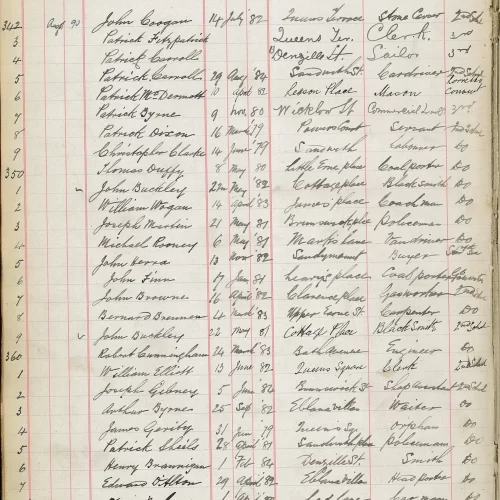 342 Aug 90 John Coogan 14 July '82 Queens Terrace Stone Carver 2nd Sch
3 Patrick Fitzpatrick Queens Ter. Clerk 3rd
4 Patrick Carroll Denzille St. Sailor 3rd
5 Patrick Carroll 29 Aug '84 Sandwith St. Gardiner
6 Patrick McDermott 10 April 82 Place Mason Convent
7 Patrick Byrne 9 Nov 80 Wicklow St Commercial 3rd
8 Patrick Dixon 16 March '79 Powerscourt Servant
9 Christopher Clarke 14 June '79 Sandwith Labourer Do
350 Thomas Duffy 8 May 80 Little Erne place Coalporter Do
1 John Buckley 22 May '82 Cottage place Blacksmith Do
2 William Wogan 14 April 83 James' place Coachman Do
3 Joseph Martin 21 May 81 Brunswick place Policeman Do
4 Michael Rooney 6 May '81 Marks lane Vandriver Do
5 John 13 Nov 82 Sandymount Buyer
6 John Finn 17 Jan 81 Leary's place Coal porter
7 John Browne 16 April 82 Clarence place
8 Bernard Brennan 4 March '83 Upper Erne St. Carpenter Do
9 John Buckley 22 May 81 Cottage Place Black Smith
360 Robert Cunningham 24 March 83 Bath Avenue Engineer Do
1 William Elliott 13 June '82 Queens Square Clerk
2 Joseph Gibney 5 June '82 Brunswick St Shop Assistant
3 Arthur Byrne 25 Sep '82 Ebbanavillas Waiter Do
4 James Gerity 31 Jan '79 Queen's Sq. Orphan Do
5 Patrick Sheils 28 April '81 Sandwith place Policeman Do
6 Henry Brannigan 1 Feb 84 Denzille St. Smith Do
7 Edward D'Alton 29 April 82 Ebbanavillas Head porter Do